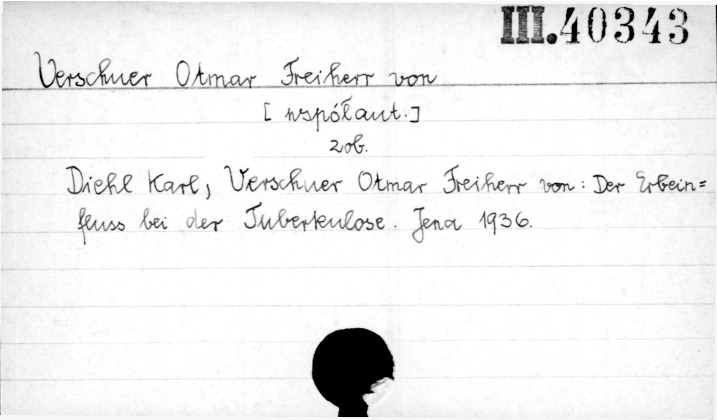 III.40343
Verschuer Otmar Freiherr von
[współaut.]
zob.
Diehl Karl, Verschuer Otmar Freiherr von: Der Erbein=
fluss bei der Tuberkulose. Jena 1936.